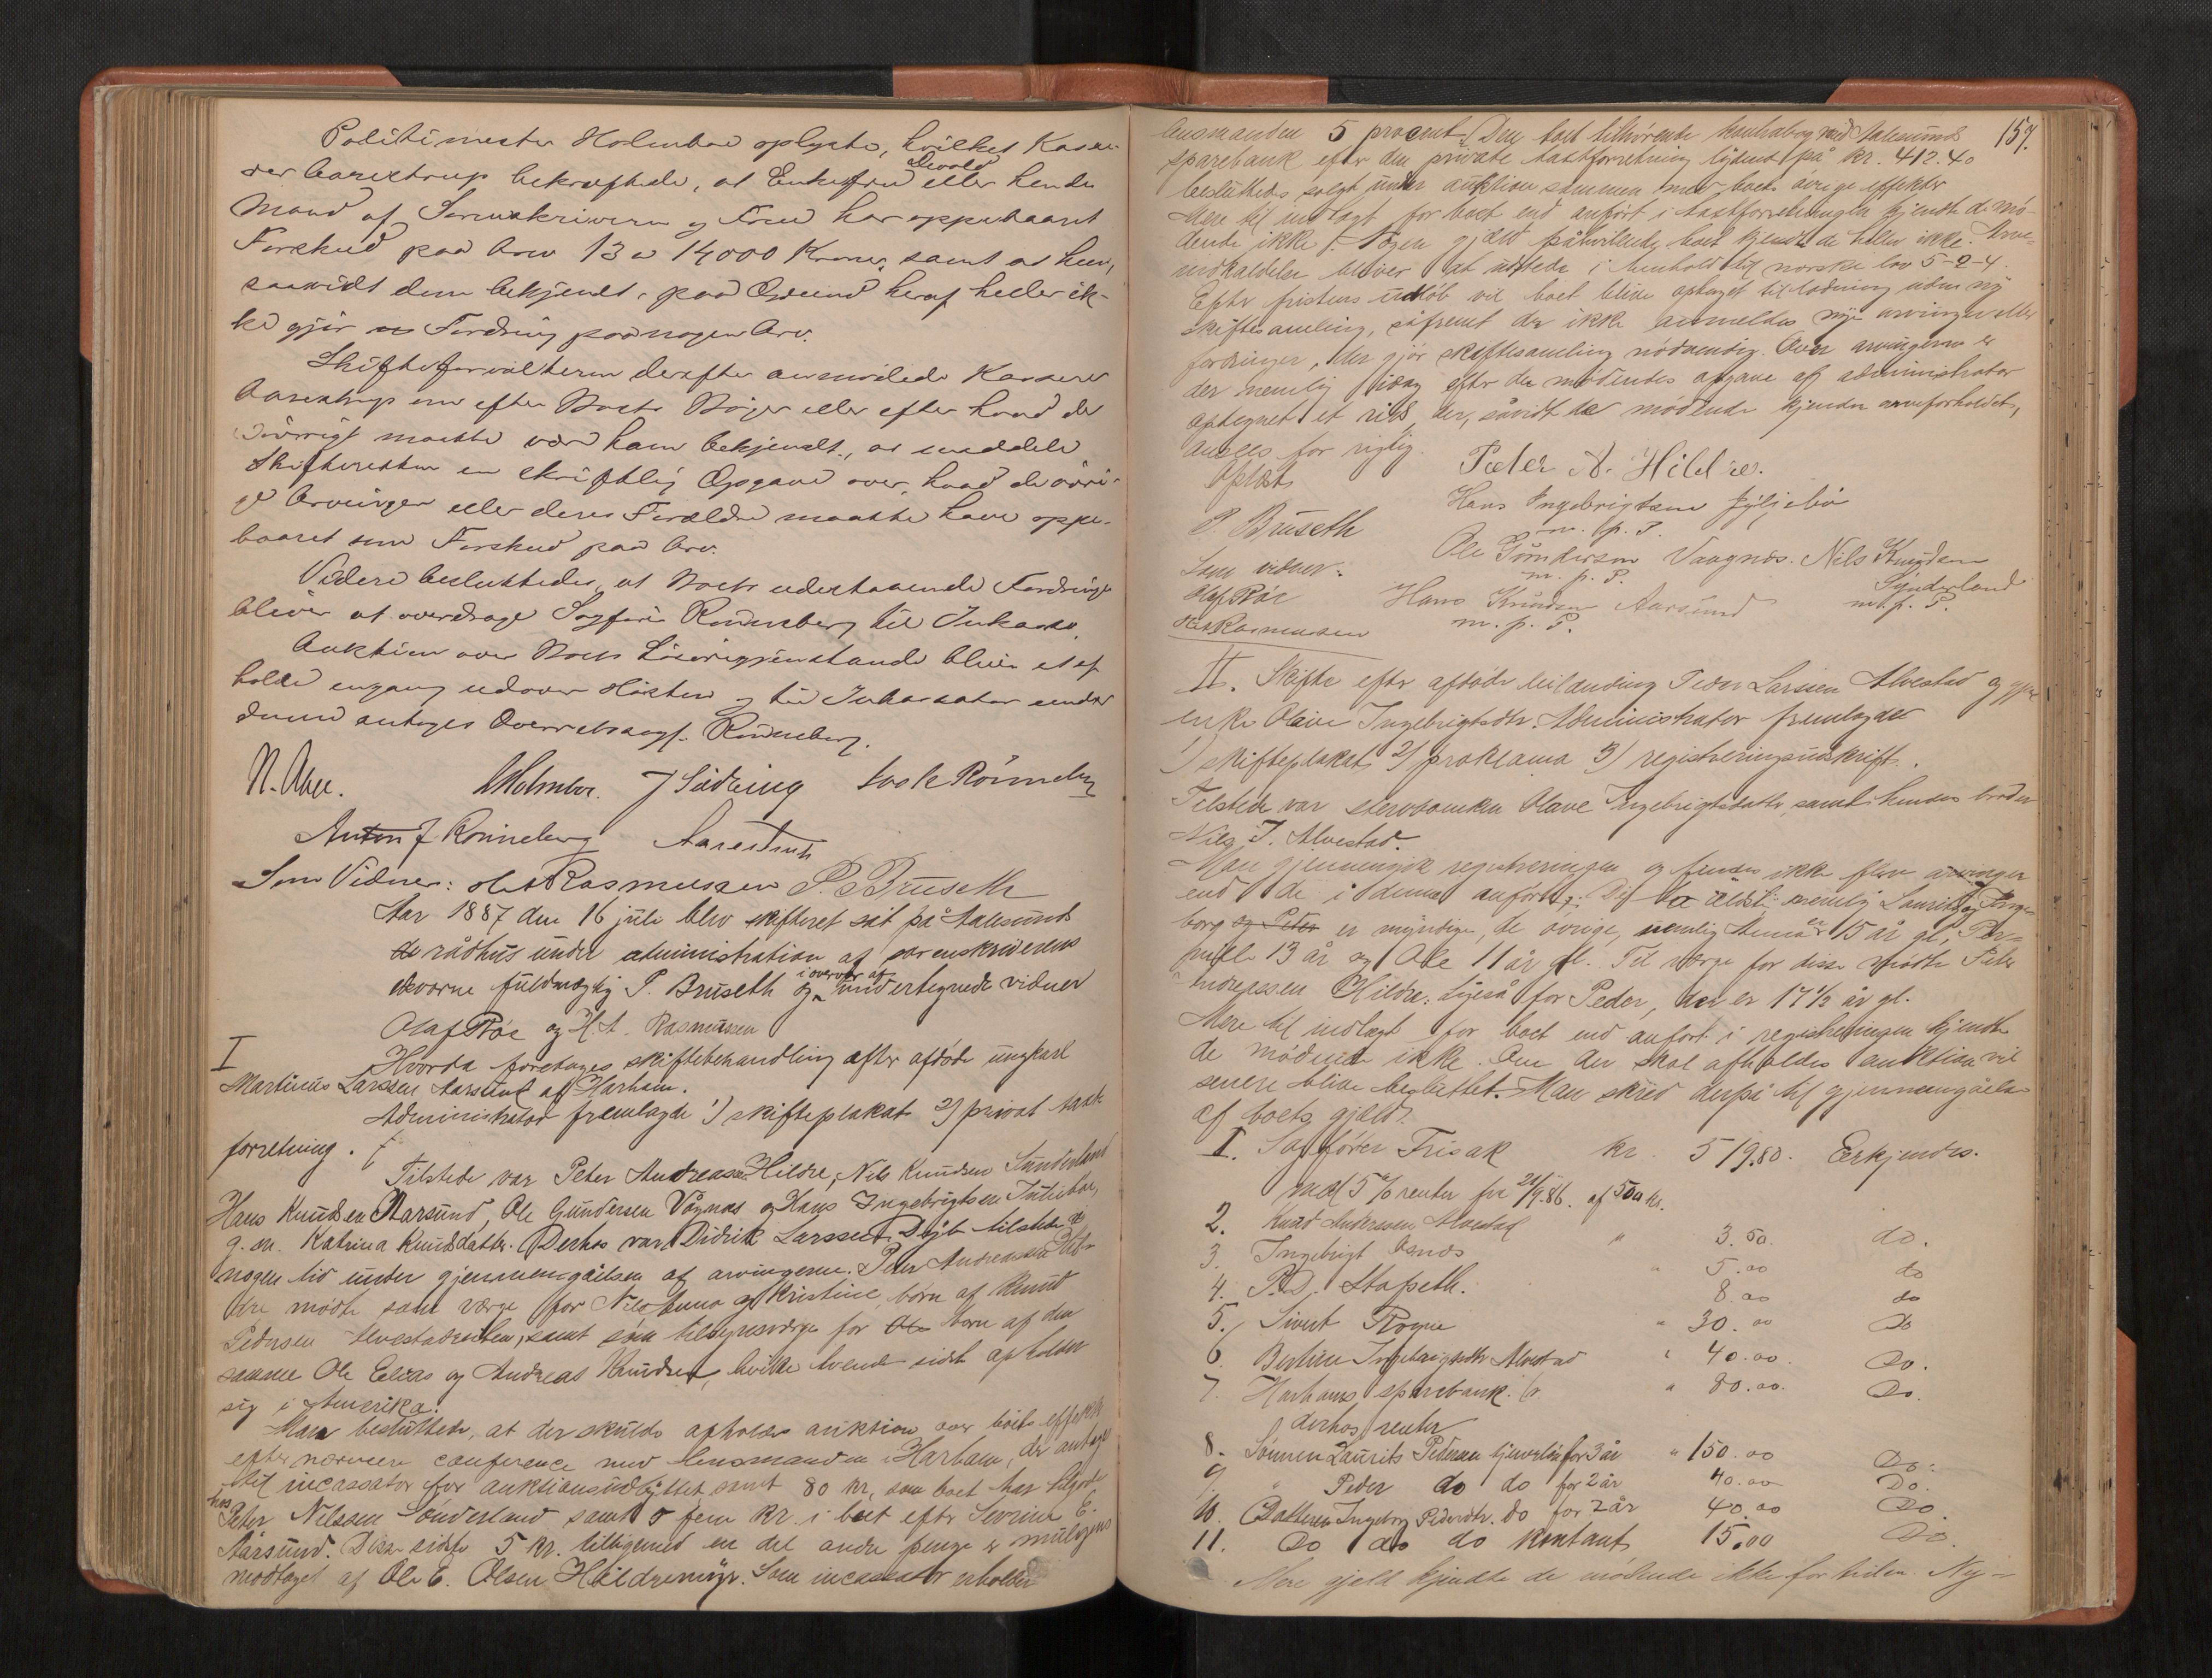 Politimester Holmboe oplyste, hvilket Kasse-
rer Aarestrup bekræftede, at Enkefru Devold eller hendes
Mand af Sorenskriveren og Frue har oppebaaret
Forskud paa Arv 13 a 14000 Kroner, samt at hun,
saavidt dem bekjendt, paa Grund heraf heller ik-
ke gjør Fordring paa nogen Arv.
Skifteforvalteren derefter anmodede Kasserer
Aarestrup om efter Boets Bøger eller efter hvad der
iøvrigt maatte være ham bekjendt, at meddele
Skifteretten en skriftlig Opgave over, hvad de øvri-
ge Arvinger eller deres Forældre maatte have oppe-
baaret som Forskud paa Arv.
Videre besluttedes, at Boets udestaaende Fordringer
bliver at overdrage Sagfører Rønneberg til Inkasso.
Auktion over Boets Løsøregjenstande bliver at af-
holde engang udover Høsten og til Inkassator under
denne antages Overretssagf. Rønneberg.
N. Aas. Holmboe. J Sødring Rønneberg
Anton J Rønneberg Aarestrup
Som Vidner: H A Rasmussen P. Bruseth
Aar 1887 den 16 juli blev skifteret sat på Aalesunds
rådhus under administration af sorenskriverens
edsvorne fuldmægtig P. Bruseth og i overvær af undertegnede vidner
Olaf Röe og H. A. Rasmussen
I Hvorda foretoges skiftebehandling efter afdöde ungkarl
Martinus Larssen Aarsund af Harham.
Administrator fremlagde 1) skifteplakat 2) privat taxt
forretning.
Tilstede var Peter Andreassen Hildre, Nils Knudsen Sünderland
Hans Knudsen Aarsund, Ole Gundersen Vågnæs og Hans Ingebrigtsen
g. m. Katrina Knudsdatter. Derhos var Didrik Larssen tilstede
nogen tid under gjennemgåelsen af arvingerne. Peter Andreassen Hil-
dre mödte som værge for Nils, Anna og Kristine, börn af Knud
Pedersen, samt som tilsynsværge for börn af den
samme Ole Elias og Andreas Knudsen, hvilke tvende sidst opholder
sig i Amerika.
Man besluttede, at der skulde afholdes auktion over boets effekter
efter nærmere conference med lensmanden i Harham, der antages
til incassator for auktionsudbyttet samt 80 kr, som boet har tilgode
hos Peter Nilssen Sönderland samt fem kr. i boet efter Severine E.
Aarsund. Disse sidste 5 kr. tilligemed en del andre penge er muligens
modtaget af Ole E. Olsen Hildremyr. Som incassator erholder
157.
lensmanden 5 procent. Den boet tilhørende bankabog med Aalesunds
sparebank efter den private taxtforretning lydende på kr. 412.40
besluttedes solgt under auktion sammen med boets övrige effekter
Mere til indtægt for boet end anfört i taxtforretningen kjendte de mö-
dende ikke. Nogen gjæld påhvilende boet kjendte de heller ikke. Arve-
indkaldelse bliver at udstede i henhold til norske lov 5-2-4.
Efter fristens udløb vil boet blive optaget til lodning uden ny
skiftesamling, såfremt der ikke anmeldes nye arvinger eller
fordringer, der gjör skiftesamling nödvendig. Over arvingerne er
der nemlig idag efter de mödendes opgave af administrator
optegnet et rids der, såvidt de mödende kjender arveforholdet,
ansees for rigtig.
Oplæst
Peter A. Hildre.
P. Bruseth
Hans Ingebrigtsen
m. p. P.
Ole Gundersen Vaagnæs. Nils Knudsen
m. p. P. Sünderland
m. p. P.
Som vidner:
Olaf Röe
Hans Knudsen Aarsund
m. p. P.
H A Rasmussen
II. Skifte efter afdöde leilænding Peder Larsen Alvestad og
enke Olave Ingebrigtsdtr. Administrator fremlagde
1) skifteplakat 2) proklama 3) registreringsudskrift.
Tilstede var sterboenken Olave Ingebrigtsdatter, samt hendes broder
Nils I. Alvestad.
Man gjennemgik registreringen og fandtes ikke flere arvinger
end de i denne anförte. De to ældste nemlig Laurits og Inge-
borg og Peter er myndige, de övrige, nemlig Anna er 15 år gl, Per-
nille 13 år og Ole 11 år gl. Til værge for disse mödte Peter
Andreassen Hildre. Ligeså for Peder, der er 17½ år gl.
Mere til indtægt for boet end anfört i registreringen kjendte
de mödende ikke. Om der skal afholdes auktion vil
senere blive besluttet. Man skred derpå til gjennemgåelse
af boets gjæld.
1. Sagförer Frisak kr. 519.80. Erkjendes.
med 5 % renter fra 21/9.86. af 500 kr.
2. Knud Andersen Alvestad " 3.50. do.
3. Ingebrigt " 5.00 do
4. P. D. Stafseth. 8.00 do
5. Sivert Rogne " 30.00 Do
6. Bertine Ingebrigtsdtr Alvestad " 40.00. Do.
7. Harhams sparebank. " 80.00. Do.
derhos renter
8. Sönnen Laurits Pedersen tjenerlön for 3 år " 150.00 Do.
9. " Peder do do for 2 år 40.00 Do.
10. Datteren Ingeborg Pedersdtr. do for 2 år 40.00 Do
11. Do do do kontant 15.00 Do.
Mere gjeld kjendte de mödende ikke for tiden. Ny-